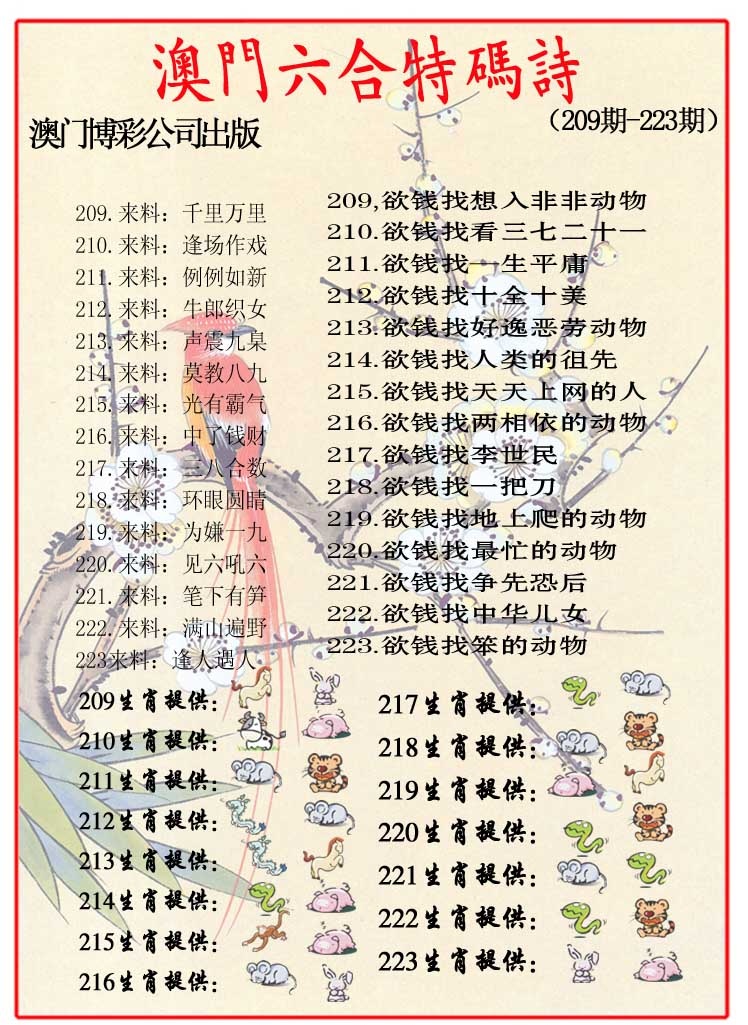 澳門六合特碼詩
澳门博彩公司出版
（209期-223期）
209.来料：千里万里
210.来料：逢场作戏
211.来料：例例如新
212.来料：牛郎织女
213.来料：声震九臬
214.来料：莫教八九
215.来料：光有霸气
216.来料：中了钱财
217.来料：三八合数
218.来料：环眼圆睛
219.来料：为嫌一九
220.来料：见六吼六
221.来料：笔下有笋
222.来料：满山遍野
223来料：逢人遇人
209,欲钱找想入非非动物
210.欲钱找看三七二十一
211.欲钱找一生平庸
212.欲钱找十全十美
213.欲钱找好逸恶劳动物
214.欲钱找人类的祖先
215.欲钱找天天上网的人
216.欲钱找两相依的动物
217.欲钱找李世民
218.欲钱找一把刀
219.欲钱找地上爬的动物
220.欲钱找最忙的动物
221.欲钱找争先恐后
222.欲钱找中华儿女
223.欲钱找笨的动物
209生肖提供：
210生肖提供：
211生肖提供：
212生肖提供：
213生肖提供：
214生肖提供：
215生肖提供：
216生肖提供：
217生肖提供：
218生肖提供：
219生肖提供：
220生肖提供：
221生肖提供：
222生肖提供：
223生肖提供：